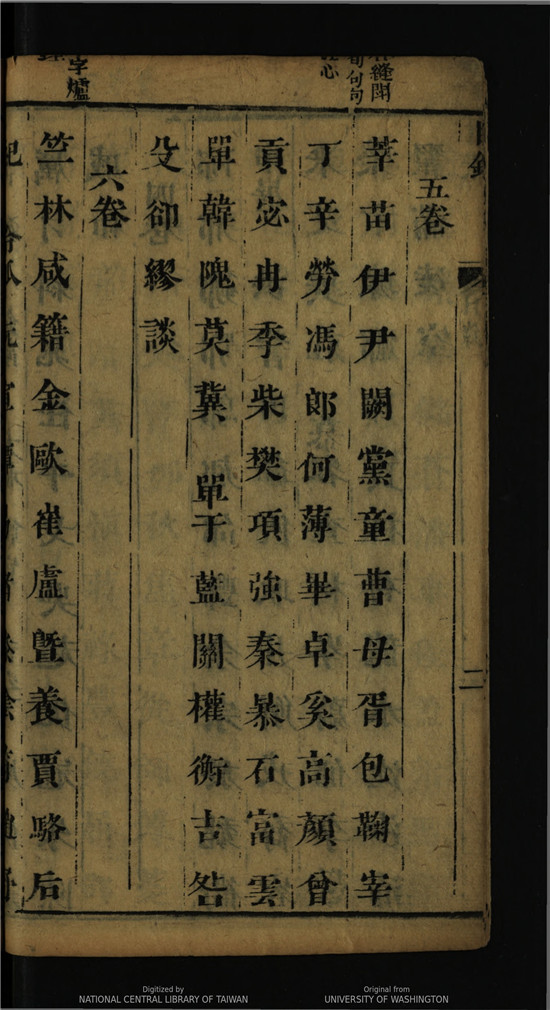 目錄
二
五卷
莘苗伊尹闕黨童曹母胥包鞠宰
丁辛勞馮郎何薄畢卓奚高顏曾
貢宓冉季柴樊項強秦暴石富雲
單韓隗莫冀單于藍關權衡吉昝
殳卻繆談
六卷
竺林咸籍金歐崔盧暨養賈駱后
Digitized by
NATIONAL CENTRAL LIBRARY OF TAIWAN
Original from
UNIVERSITY OF WASHINGTON